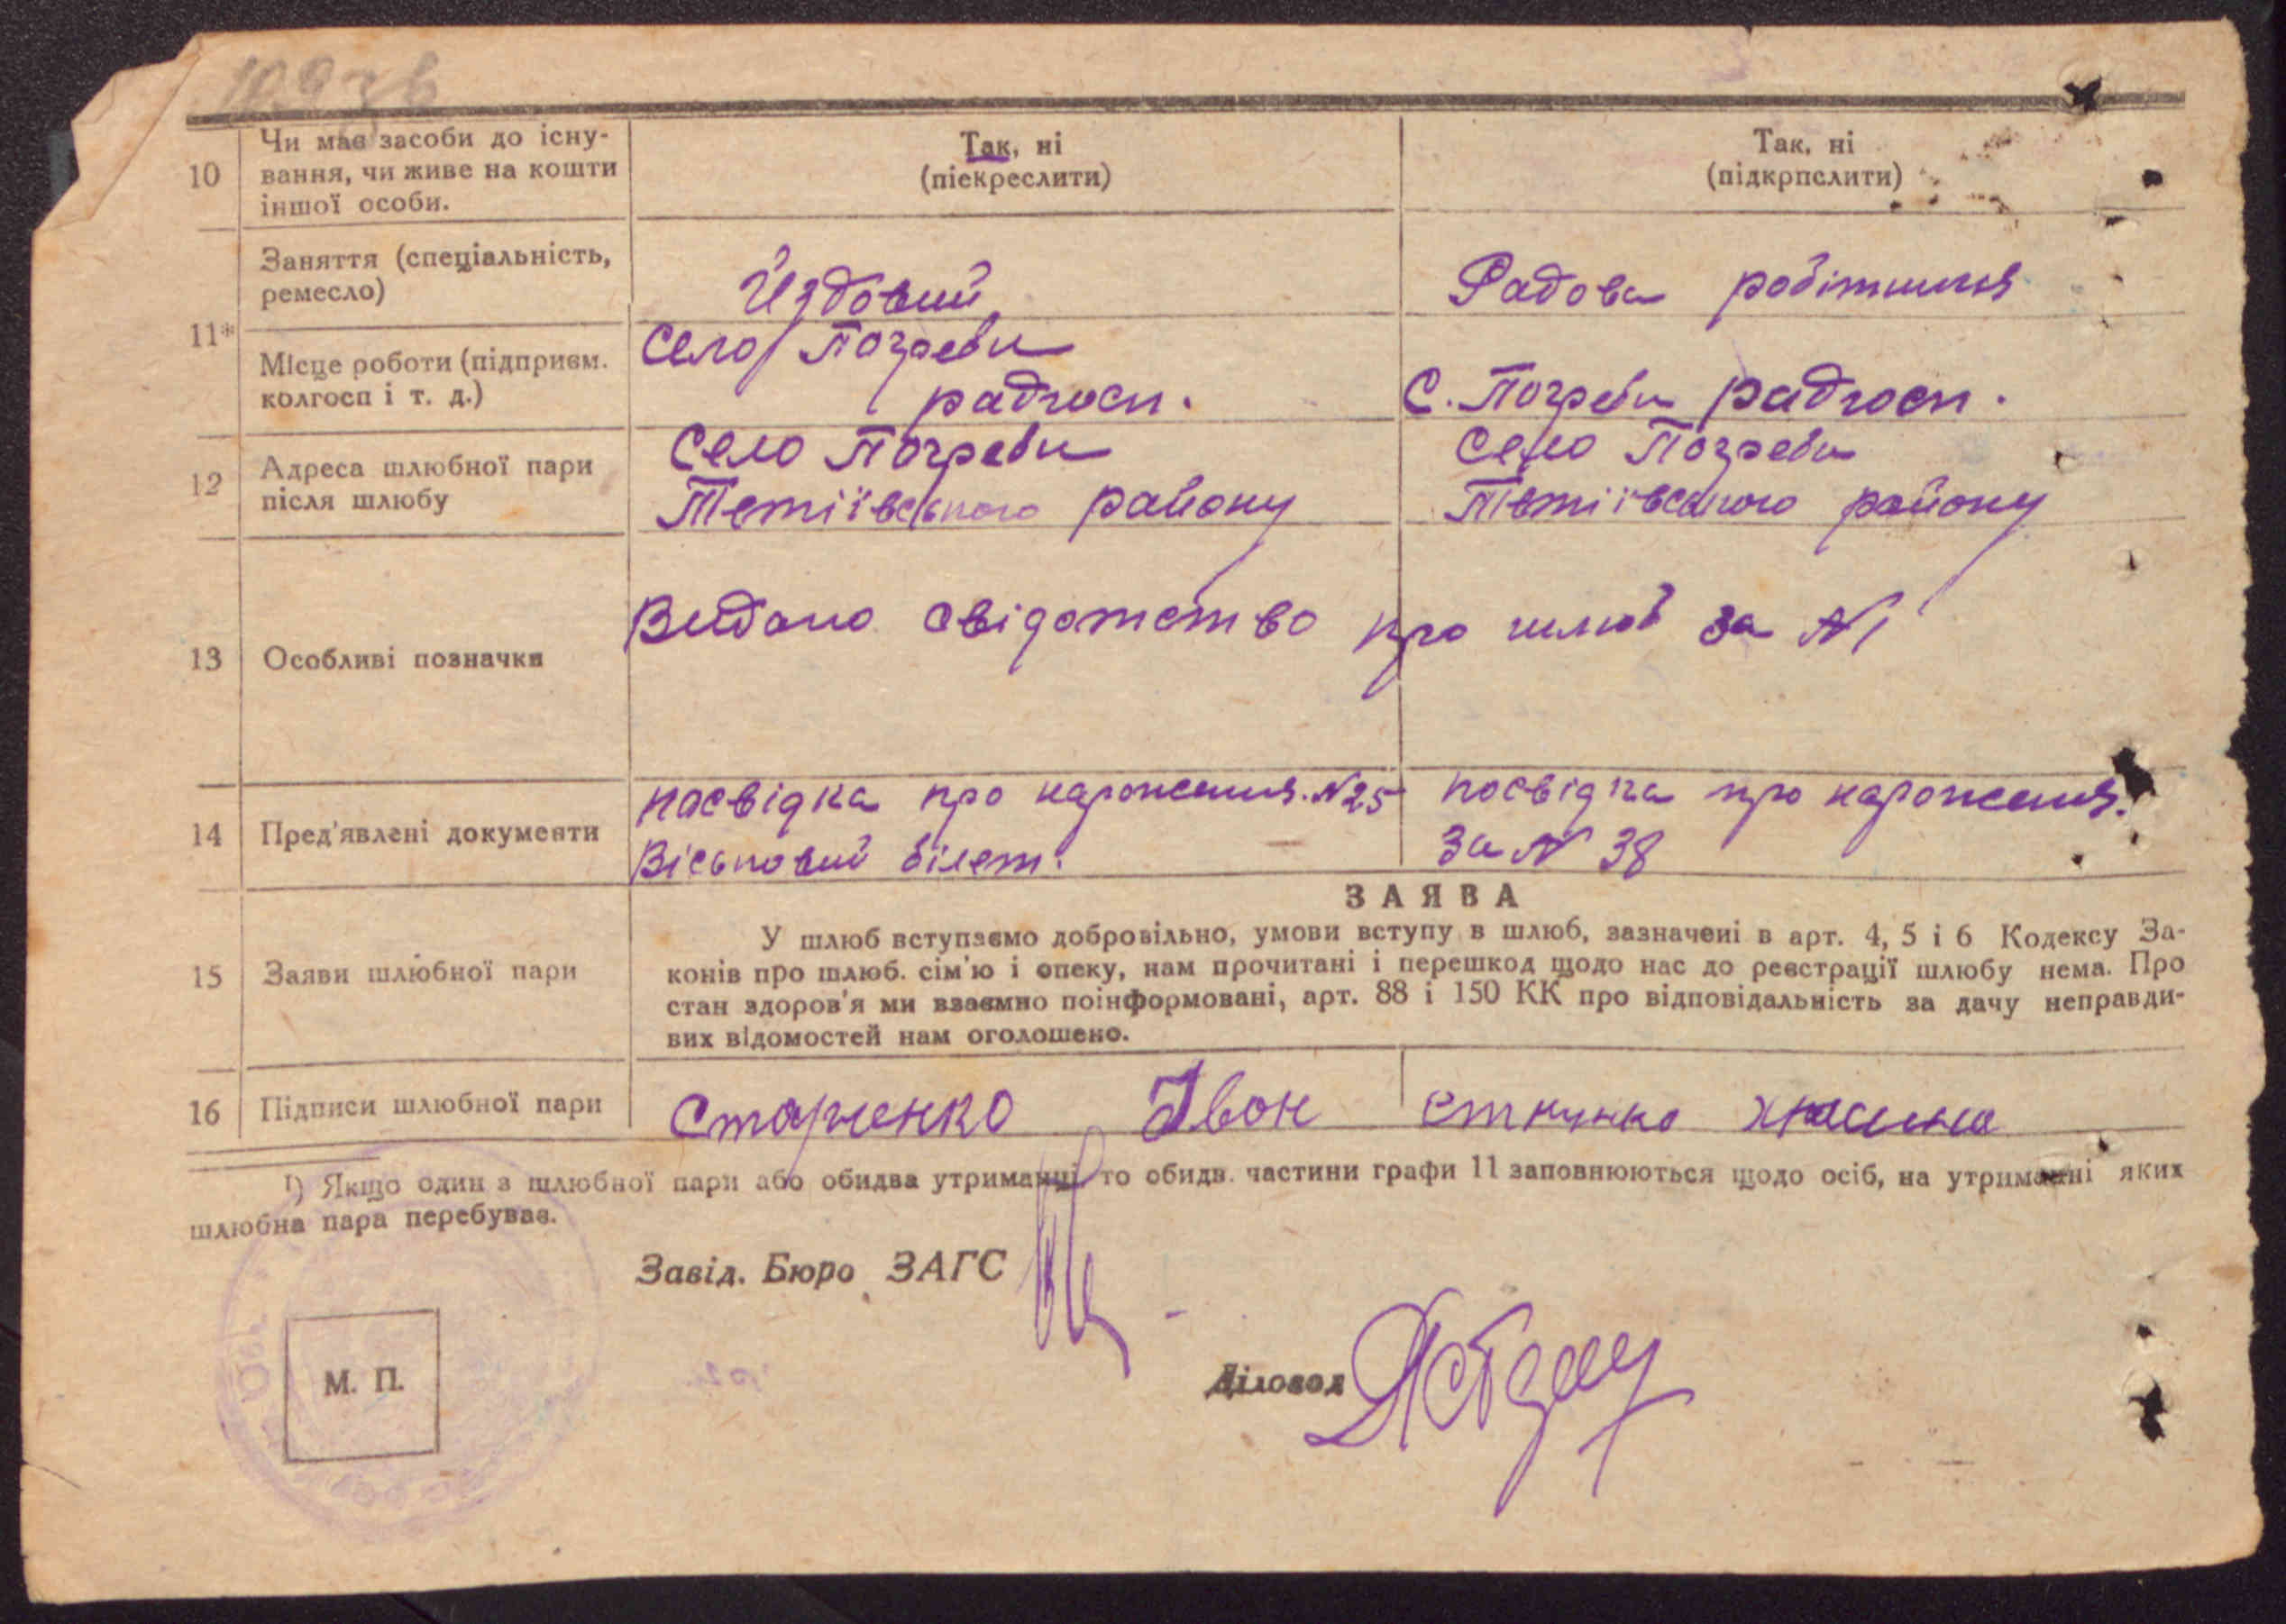 10
Чи має засоби до існу-
вання, чи живе на кошти
іншої особи.
Так, ні
(піекреслити)
Так, ні
(підкрпслити)
11*
Заняття (спеціальність,
ремесло)
Їздовий
Радова робітниця
Місце роботи (підприєм.
колгосп і т. д.)
Село Погреби
радгосп.
С. Погреби радгосп.
12
Адреса шлюбної пари
після шлюбу
Село Погреби
Тетіївського району
Село Погреби
Тетіївського району
13
Особливі позначки
Видано свідотство про шлюб за №1
14
Пред'явлені документи
посвідка про народження №25
Військовий білет.
посвідка про народження.
за № 38
ЗАЯВА
15
Заяви шлюбної пари
У шлюб вступаємо добровільно, умови вступу в шлюб, зазначені в арт. 4, 5 і 6 Кодексу За-
конів про шлюб. сім'ю і опеку, нам прочитані і перешкод щодо нас до реєстрації шлюбу нема. Про
стан здоров'я ми взаємно поінформовані, арт. 88 і 150 КК про відповідальність за дачу неправди-
вих відомостей нам оголошено.
16
Підписи шлюбної пари
Старченко Івон
¹) Якщо один з шлюбної пари або обидва утриманці то обидв. частини графи 11 заповнюються щодо осіб, на утриманні яких
шлюбна пара перебуває.
Завід. Бюро ЗАГС
М. П.
Діловод